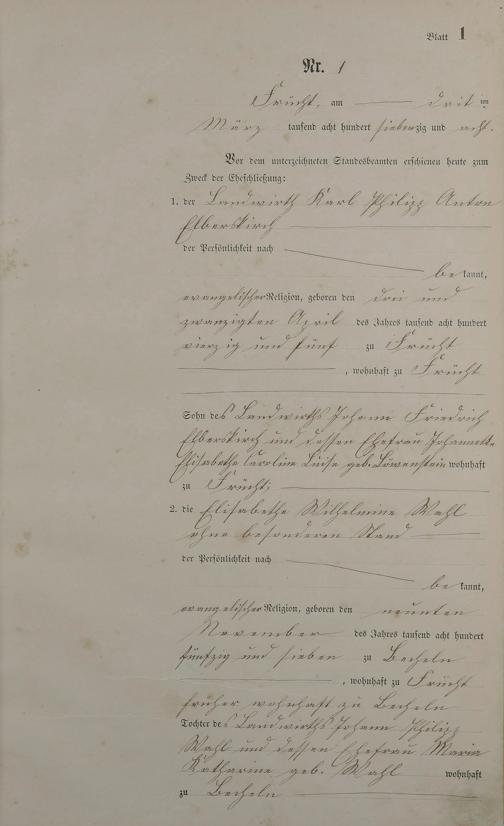 Blatt 1
Nr. 1
Frücht, am dritten
März tausend acht hundert siebenzig und acht.
Vor dem unterzeichneten Standesbeamten erschienen heute zum
Zweck der Eheschließung:
1. der Landwirth Karl Philipp Anton
Elberskirch
der Persönlichkeit nach
bekannt,
evangelischer Religion, geboren den drei und
zwanzigten April des Jahres tausend acht hundert
vierzig und fünf zu Frücht
, wohnhaft zu Frücht
Sohn des Landwirths Johann Friedrich
Elberskirch und dessen Ehefrau Johannette
Elisabethe Caroline Luise geb. Löwenstein wohnhaft
zu Frücht;
2. die Elisabethe Wilhelmine Wahl
ohne besonderen Stand
der Persönlichkeit nach
bekannt,
evangelischer Religion, geboren den neunten
November des Jahres tausend acht hundert
fünfzig und sieben zu Becheln
, wohnhaft zu Frücht
früher wohnhaft zu Becheln
Tochter des Landwirths Johann Philipp
Wahl und dessen Ehefrau Maria
Katharine geb. Wahl wohnhaft
zu Becheln